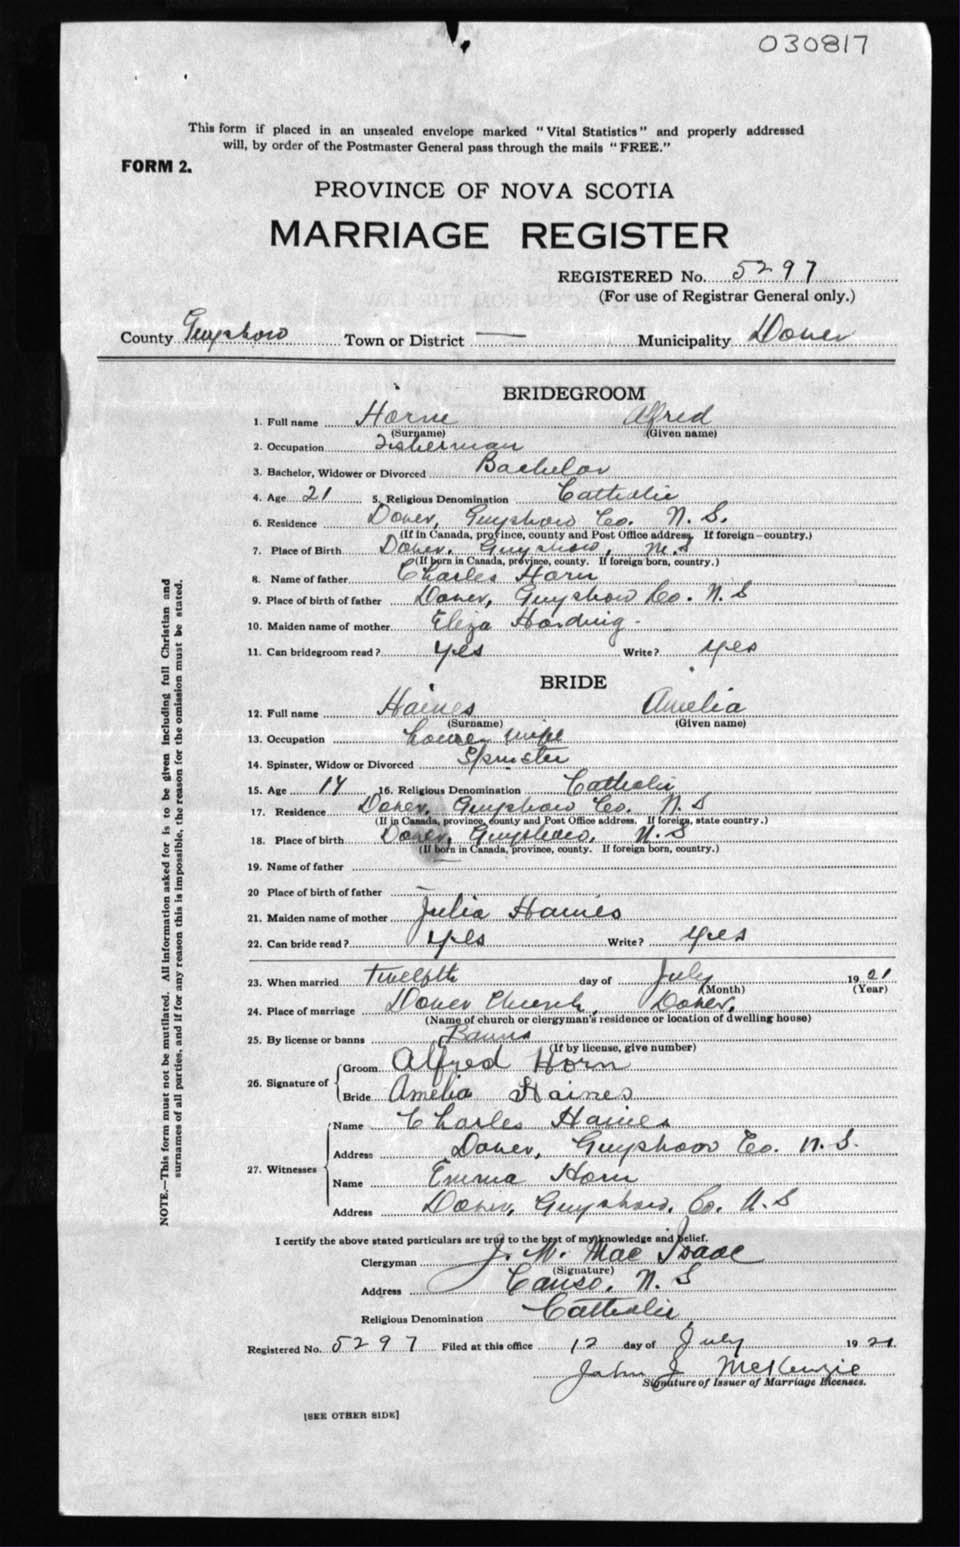 030817
This form if placed in an unsealed envelope marked "Vital Statistics" and properly addressed
will, by order of the Postmaster General pass through the mails "FREE."
FORM 2.
PROVINCE OF NOVA SCOTIA
MARRIAGE REGISTER
REGISTERED No. 5297
(For use of Registrar General only.)
County Guysboro Town or District — Municipality Dover
BRIDEGROOM
1. Full name Horne Alfred
(Surname) (Given name)
2. Occupation Fisherman
3. Bachelor, Widower or Divorced Bachelor
4. Age 21 5. Religious Denomination Catholic
6. Residence Dover, Guysboro Co. N. S.
(If in Canada, province, county and Post Office address. If foreign—country.)
7. Place of Birth Dover, Guysboro, N.S
(If born in Canada, province, county. If foreign born, country.)
8. Name of father Charles Horn
9. Place of birth of father Dover, Guysboro Co. N. S
10. Maiden name of mother Eliza Harding
11. Can bridegroom read? yes Write? yes
BRIDE
12. Full name Haines Amelia
(Surname) (Given name)
13. Occupation house wife
14. Spinster, Widow or Divorced Spinster
15. Age 16. Religious Denomination Catholic
17. Residence Dover, Guysboro Co. N. S
(If in Canada, province, county and Post Office address. If foreign, state country.)
18. Place of birth Dover, Guysboro, N. S
(If born in Canada, province, county. If foreign born, country.)
19. Name of father
20 Place of birth of father —
21. Maiden name of mother Julia Haines
22. Can bride read? yes Write? yes
23. When married twelfth day of July 1921
(Month) (Year)
24. Place of marriage Dover Church, Dover,
(Name of church or clergyman's residence or location of dwelling house)
25. By license or banns Banns
(If by license, give number)
26. Signature of Groom Alfred Horn
Bride Amelia Haines
27. Witnesses Name Charles Haines
Address Dover, Guysboro Co. N. S.
Name Emma Horn
Address Dover, Guysboro, Co. N. S
I certify the above stated particulars are true to the best of my knowledge and belief.
Clergyman J. M. Mac Isaac
(Signature)
Address Canso, N. S
Religious Denomination Catholic
Registered No. 5297 Filed at this office 12 day of July 1921.
John J McKenzie
Signature of Issuer of Marriage Licenses.
[SEE OTHER SIDE]
NOTE.—This form must not be mutilated. All information asked for is to be given including full Christian and
surnames of all parties, and if for any reason this is impossible, the reason for the omission must be stated.